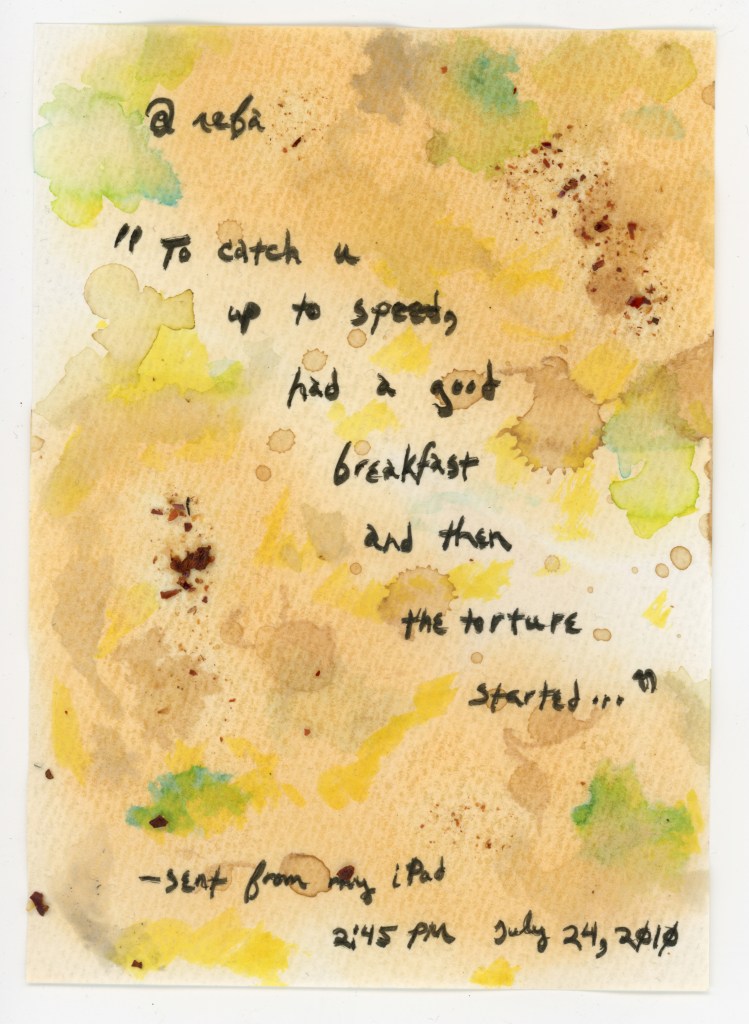 @ reba
"To catch u
up to speed,
had a good
breakfast
and then
the torture
started..."
-sent from my iPad
2:45 PM July 24, 2010